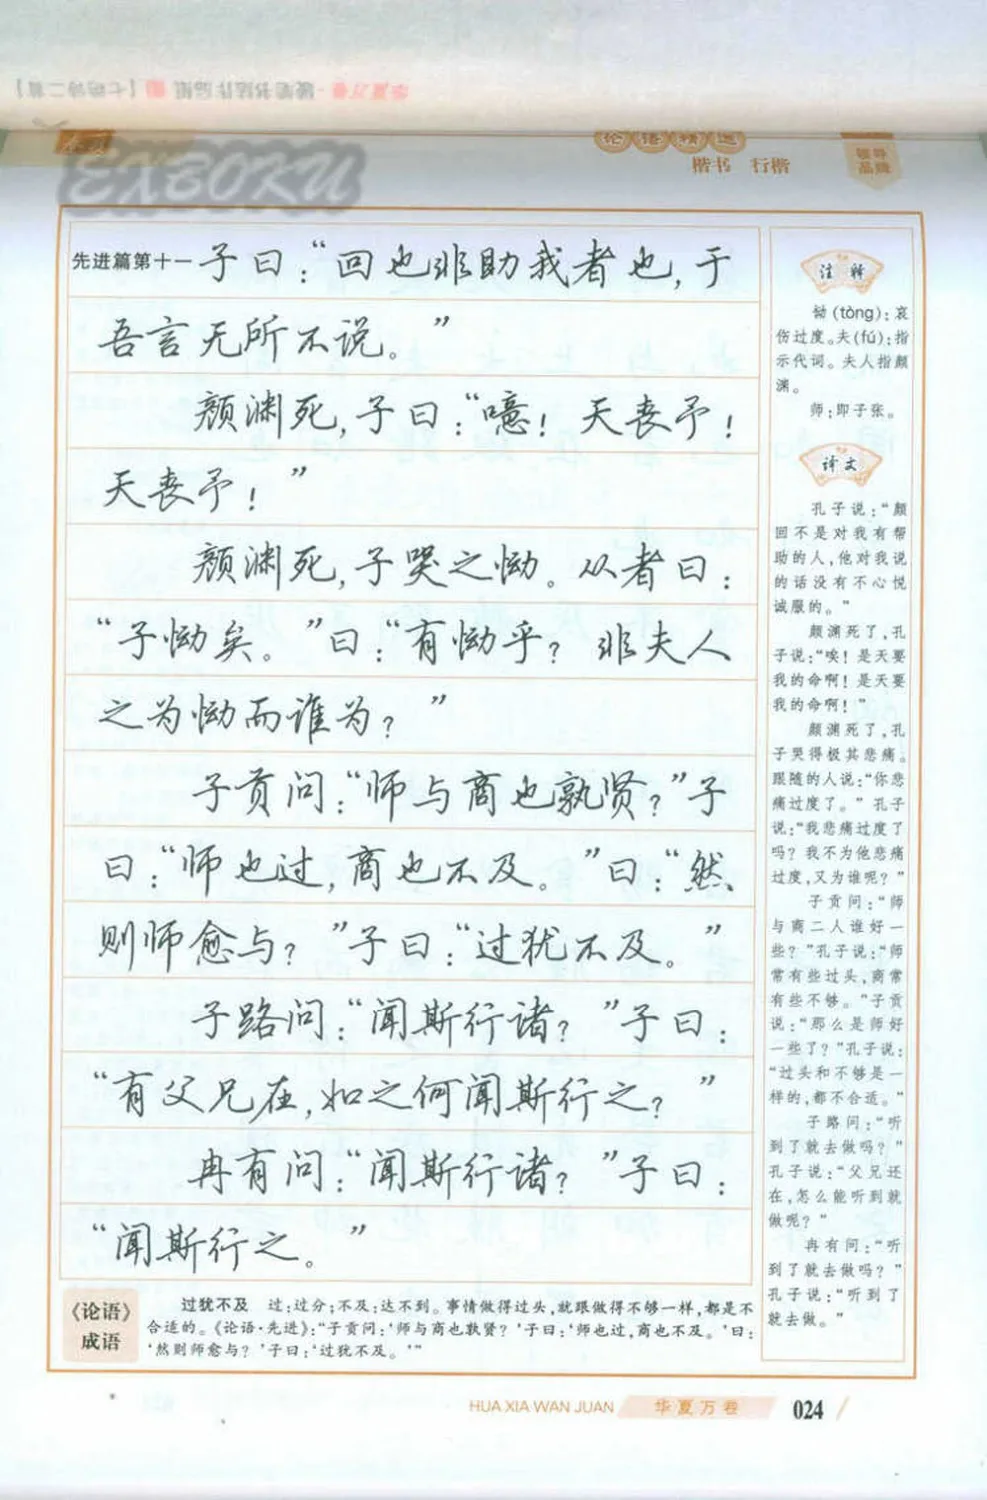 华夏万卷·硬笔书法作品纸 【七言诗二首】
EXBOKU
论语精选
楷书 行楷
领导
品牌
先进篇第十一 子曰：“回也非助我者也，于
吾言无所不说。”
颜渊死，子曰：“噫！天丧予！
天丧予！”
颜渊死，子哭之恸。从者曰：
“子恸矣。”曰：“有恸乎？非夫人
之为恸而谁为？”
子贡问：“师与商也孰贤？”子
曰：“师也过，商也不及。”曰：“然
则师愈与？”子曰：“过犹不及。”
子路问：“闻斯行诸？”子曰：
“有父兄在，如之何闻斯行之？”
冉有问：“闻斯行诸？”子曰：
“闻斯行之。”
注释
恸(tòng)：哀
伤过度。夫(fú)：指
示代词。夫人指颜
渊。
师：即子张。
译文
孔子说：“颜
回不是对我有帮
助的人，他对我说
的话没有不心悦
诚服的。”
颜渊死了，孔
子说：“唉！是天要
我的命啊！是天要
我的命啊！”
颜渊死了，孔
子哭得极其悲痛。
跟随的人说：“你悲
痛过度了。”孔子
说：“我悲痛过度了
吗？我不为他悲痛
过度，又为谁呢？”
子贡问：“师
与商二人谁好一
些？”孔子说：“师
常有些过头，商常
有些不够。”子贡
说：“那么是师好
一些了？”孔子说：
“过头和不够是一
样的，都不合适。”
子路问：“听
到了就去做吗？”
孔子说：“父兄还
在，怎么能听到就
做呢？”
冉有问：“听
到了就去做吗？”
孔子说：“听到了
就去做。”
《论语》
成语
过犹不及 过：过分；不及：达不到。事情做得过头，就跟做得不够一样，都是不
合适的。《论语·先进》：“子贡问：‘师与商也孰贤？’子曰：‘师也过，商也不及。’曰：
‘然则师愈与？’子曰：‘过犹不及。’”
HUA XIA WAN JUAN 华夏万卷 024